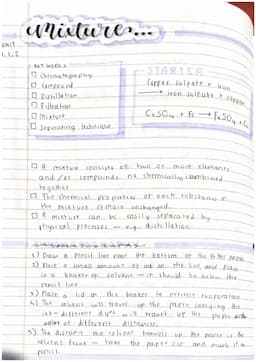 Mixture...
1.1.2
KEY WORDS
□ Chromatography
□ Compound
□ Distillation
□ Filtration
□ Mixture
□ Separating technique
STARTER
Copper sulfate + iron
→ iron sulfate + copper
CuSO4 + Fe → FeSO4 + Cu
□ A mixture consists of two or more elements
and/or compounds not chemically combined
together
□ The chemical properties of each substance in
the mixture remain unchanged.
□ A mixture can be easily separated by
physical processes - e.g. distillation
1) Draw a pencil line near the bottom of the filter paper
2) Place a small amount of ink on the line and place
in a beaker of solvent - it should be below the
pencil line
3) Place a lid on the beaker to prevent evaporation
4) The solvent will travel up the paper, carrying the
ink - different dyes will travel up the paper
at different distances.
5) The distance the solvent travels up the paper is the
solvent front - take the paper out and mark it in
pencil.